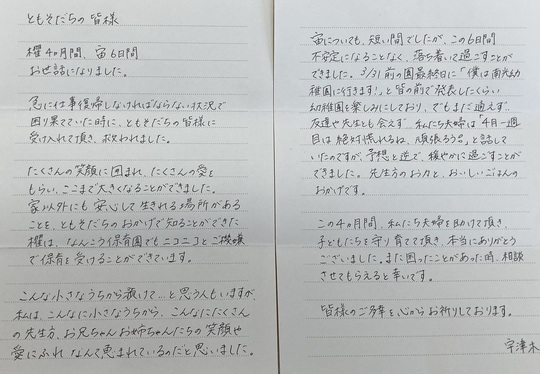 ともそだちの皆様
櫂4ヵ月間、宙6日間
お世話になりました。
急に仕事復帰しなければならない状況で
困り果てていた時に、ともそだちの皆様に
受け入れて頂き、救われました。
たくさんの笑顔に囲まれ、たくさんの愛を
もらい、ここまで大きくなることができました。
家以外にも安心して生きれる場所がある
ことを、ともそだちのおかげで知ることができた
櫂は、なんこう保育園でもニコニコとご機嫌
で保育を受けることができています。
こんな小さなうちから預けて…と思う人もいますが、
私は、こんなに小さなうちから、こんなにたくさん
の先生方、お兄ちゃんお姉ちゃんたちの笑顔や
愛にふれ なんて恵まれているのだと思いました。
宙についても、短い間でしたが、この6日間
不安定になることなく、落ち着いて過ごすことが
できました。3/31 前の園最終日に「僕は南光幼
稚園に行きます!」と皆の前で発表したくらい
幼稚園を楽しみにしており、でもまだ通えず
友達や先生とも会えず 私たち夫婦は「4月一週
目は絶対荒れるね、頑張ろうね」と話して
いたのですが、予想と逆で、穏やかに過ごすことが
できました。先生方のお力と、おいしいごはんの
おかげです。
この4ヵ月間、私たち夫婦を助けて頂き、
子どもたちを守り育てて頂き、本当にありがとう
ございました。また困ったことがあった時、相談
させてもらえると幸いです。
皆様のご多幸を心からお祈りしております。
宇津木